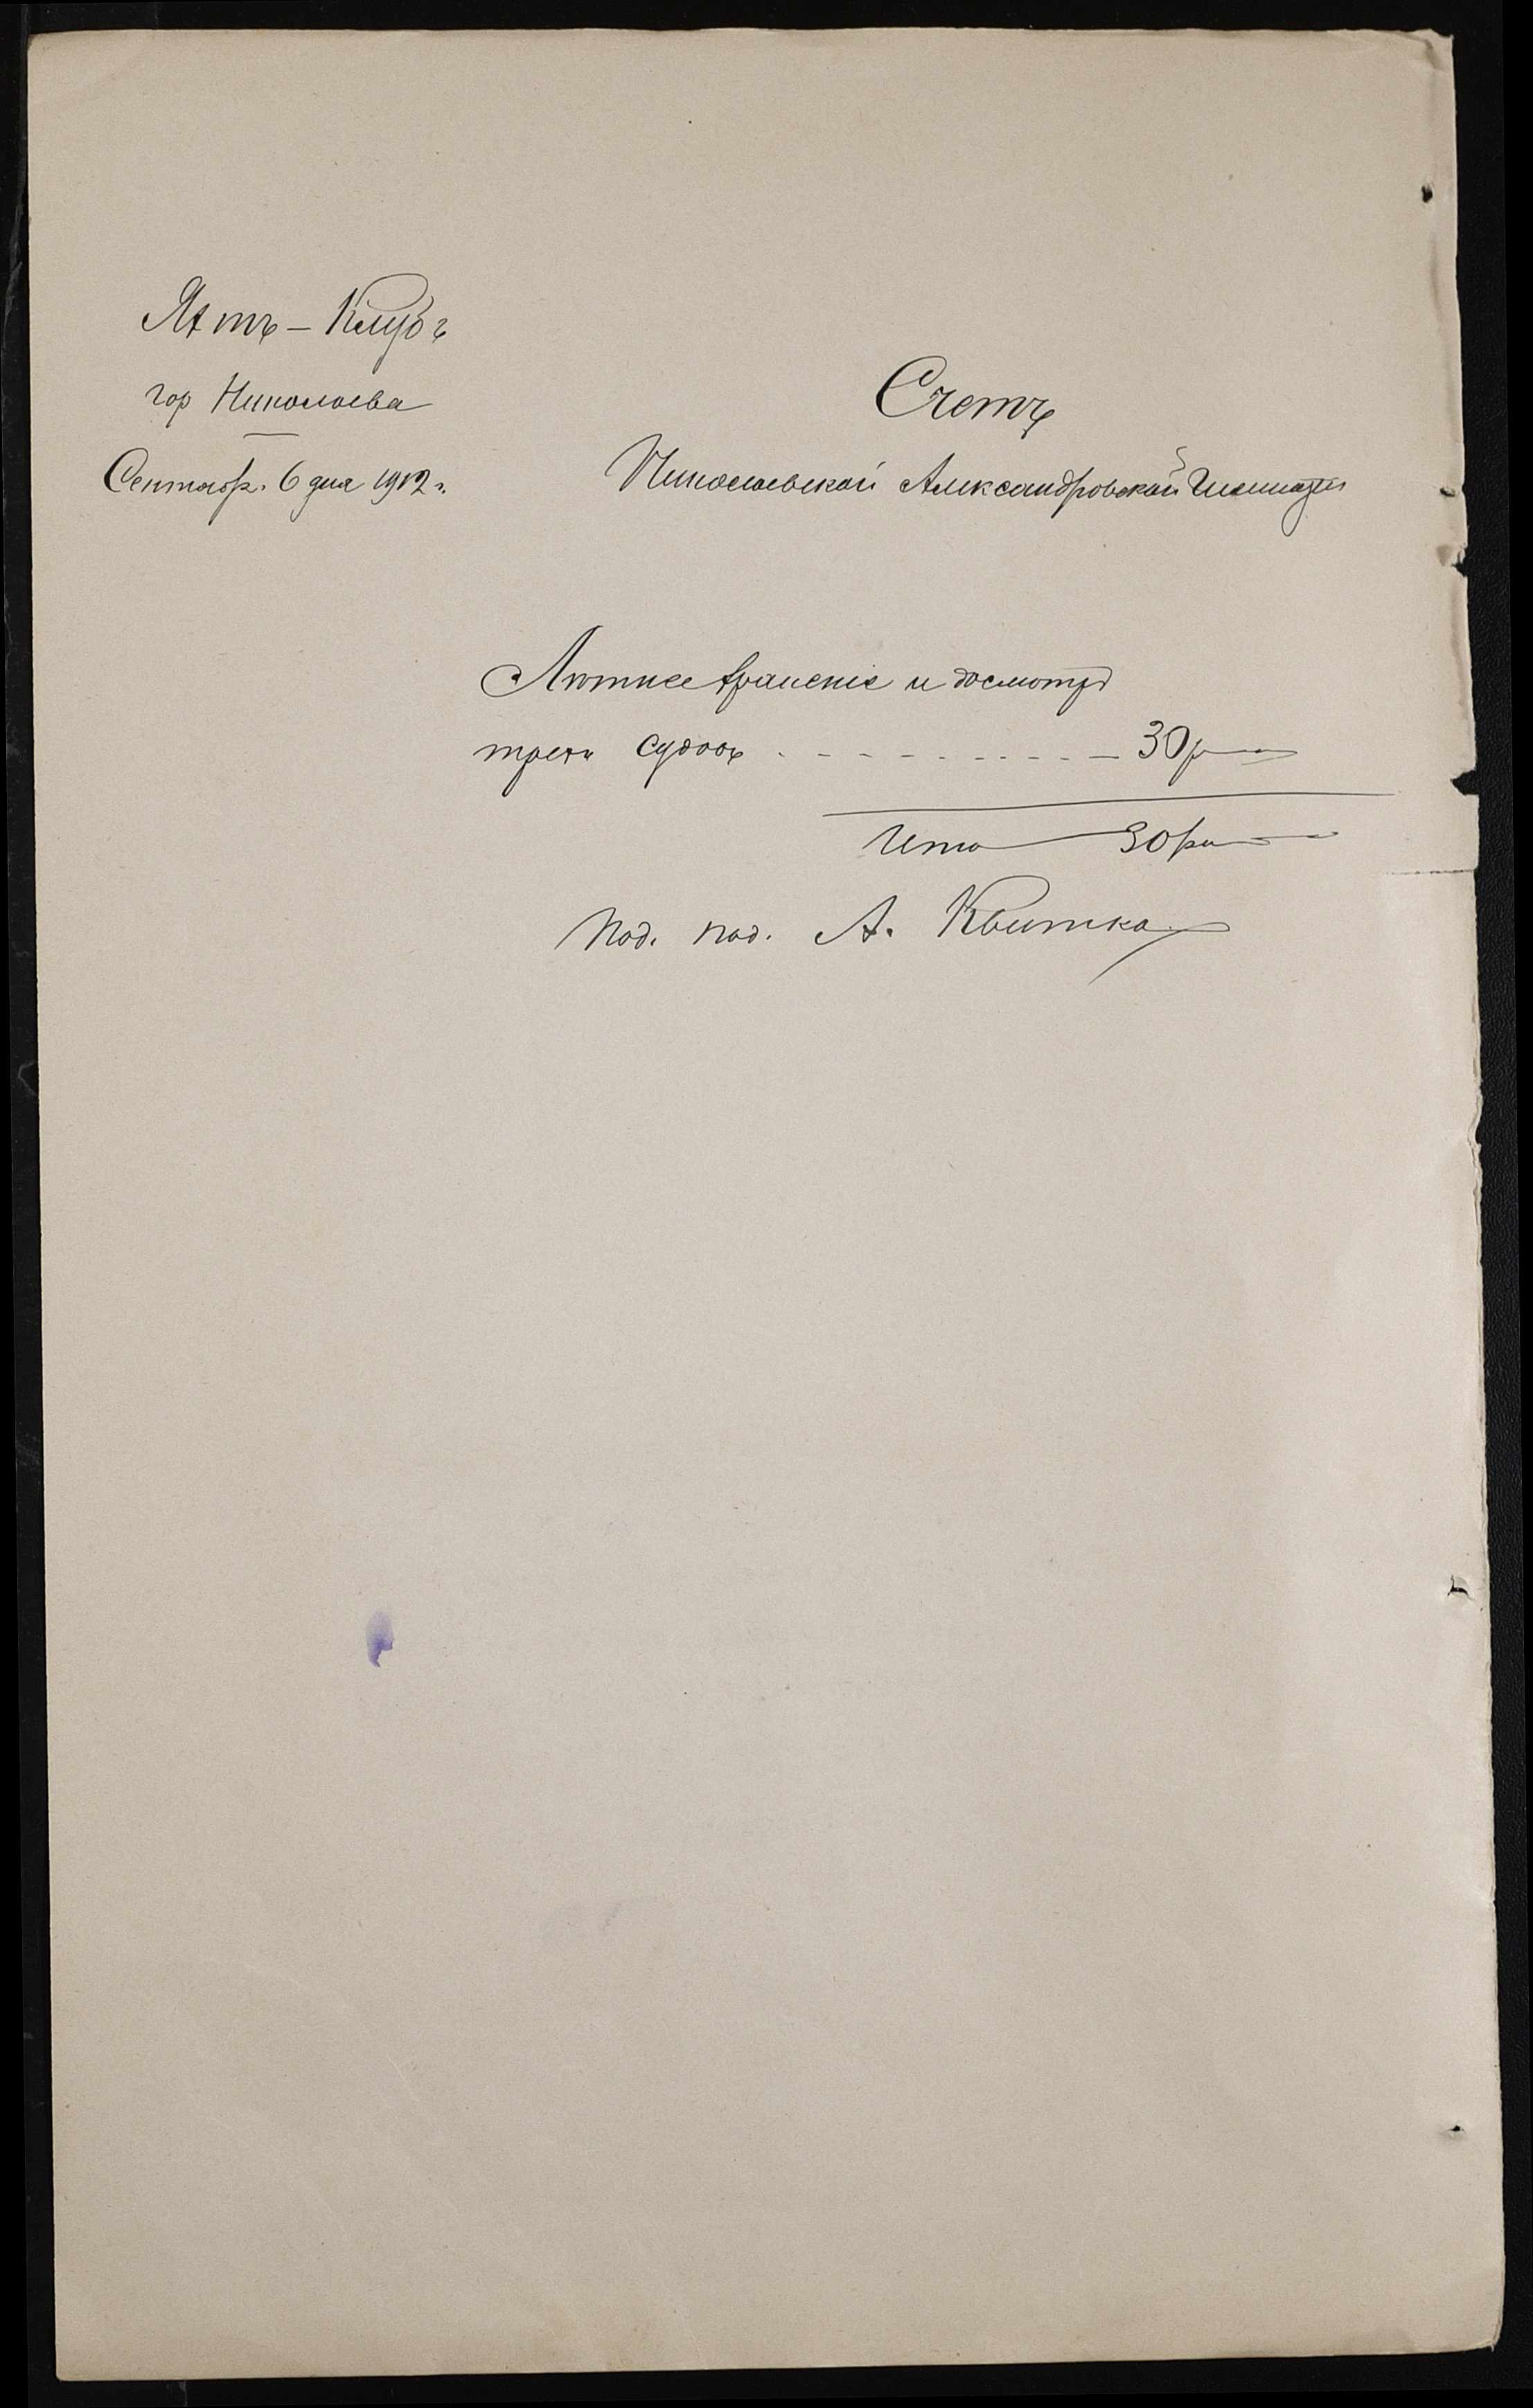 Яхтъ-Клубъ
гор Николаева
Сентябр. 6 дня 1912 г.
Счетъ
Николаевской Александровской Гимназіи
Летнее храненіе и досмотръ
трехъ судовъ . - - - - - - - - - 30 р —
Итого — 30 р —
Под. под. А. Квитка